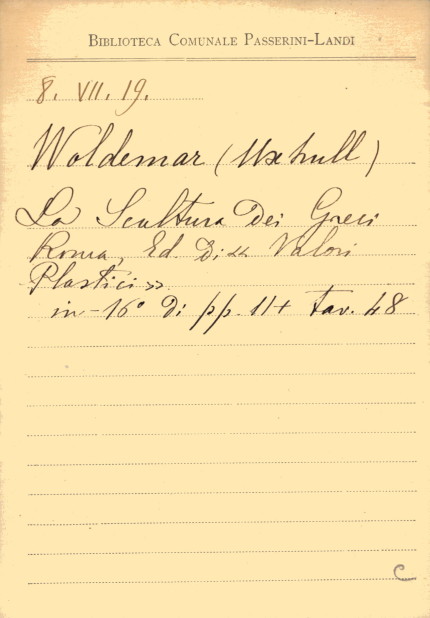 BIBLIOTECA COMUNALE PASSERINI-LANDI
8. VII. 19.
Woldemar (Uxhull)
La Scultura Dei Greci
Roma, Ed. Di << Valori
Plastici >>
in-16° Di pp. 11+ Tav. 48
C